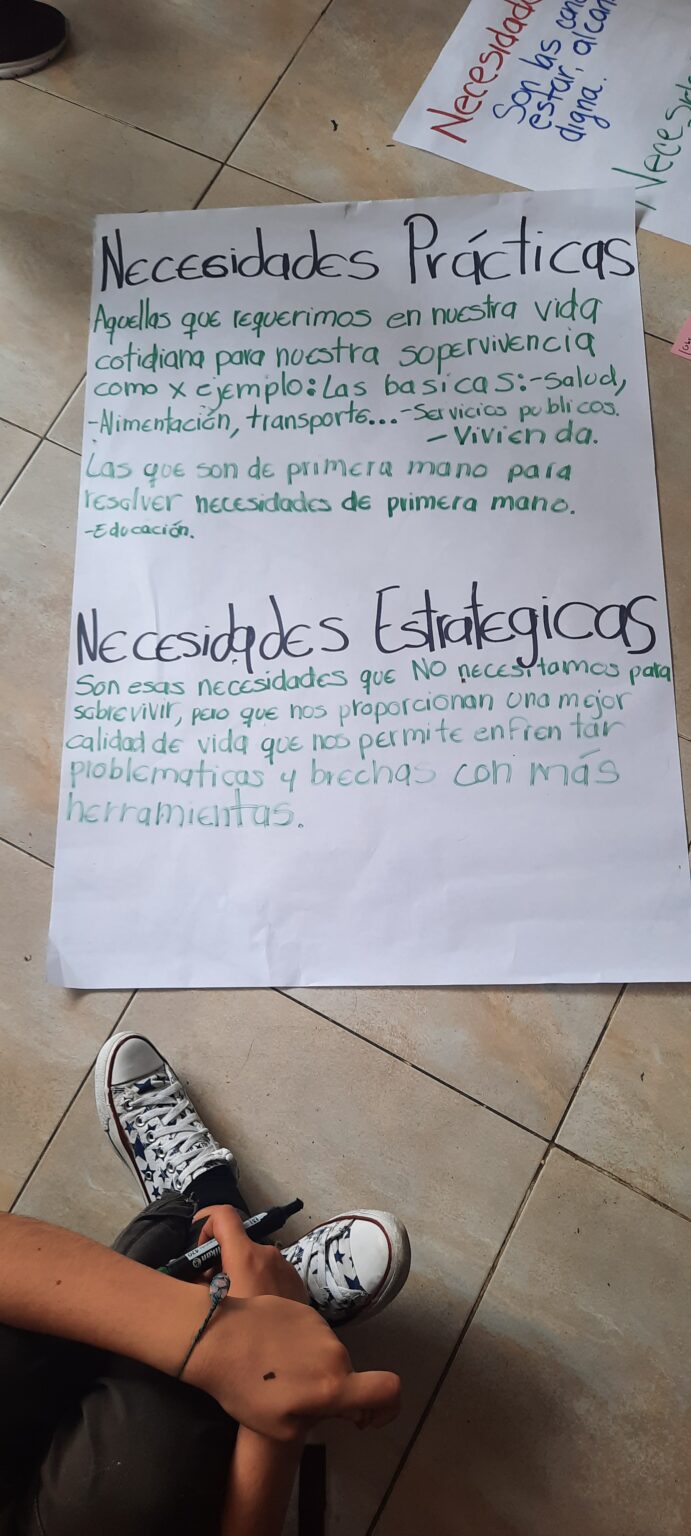 Necesidades Prácticas
Aquellas que requerimos en nuestra vida
cotidiana para nuestra sopervivencia
como x ejemplo: Las basicas:-Salud,
-Alimentación, transporte...-Servicios publicos.
-Vivienda.
Las que son de primera mano para
resolver necesidades de primera mano.
-Educación.
Necesidades Estrategicas
Son esas necesidades que NO necesitamos para
sobrevivir, pero que nos proporcionan una mejor
calidad de vida que nos permite enfrentar
problematicas y brechas con más
herramientas.
Son las
estar,
digna.